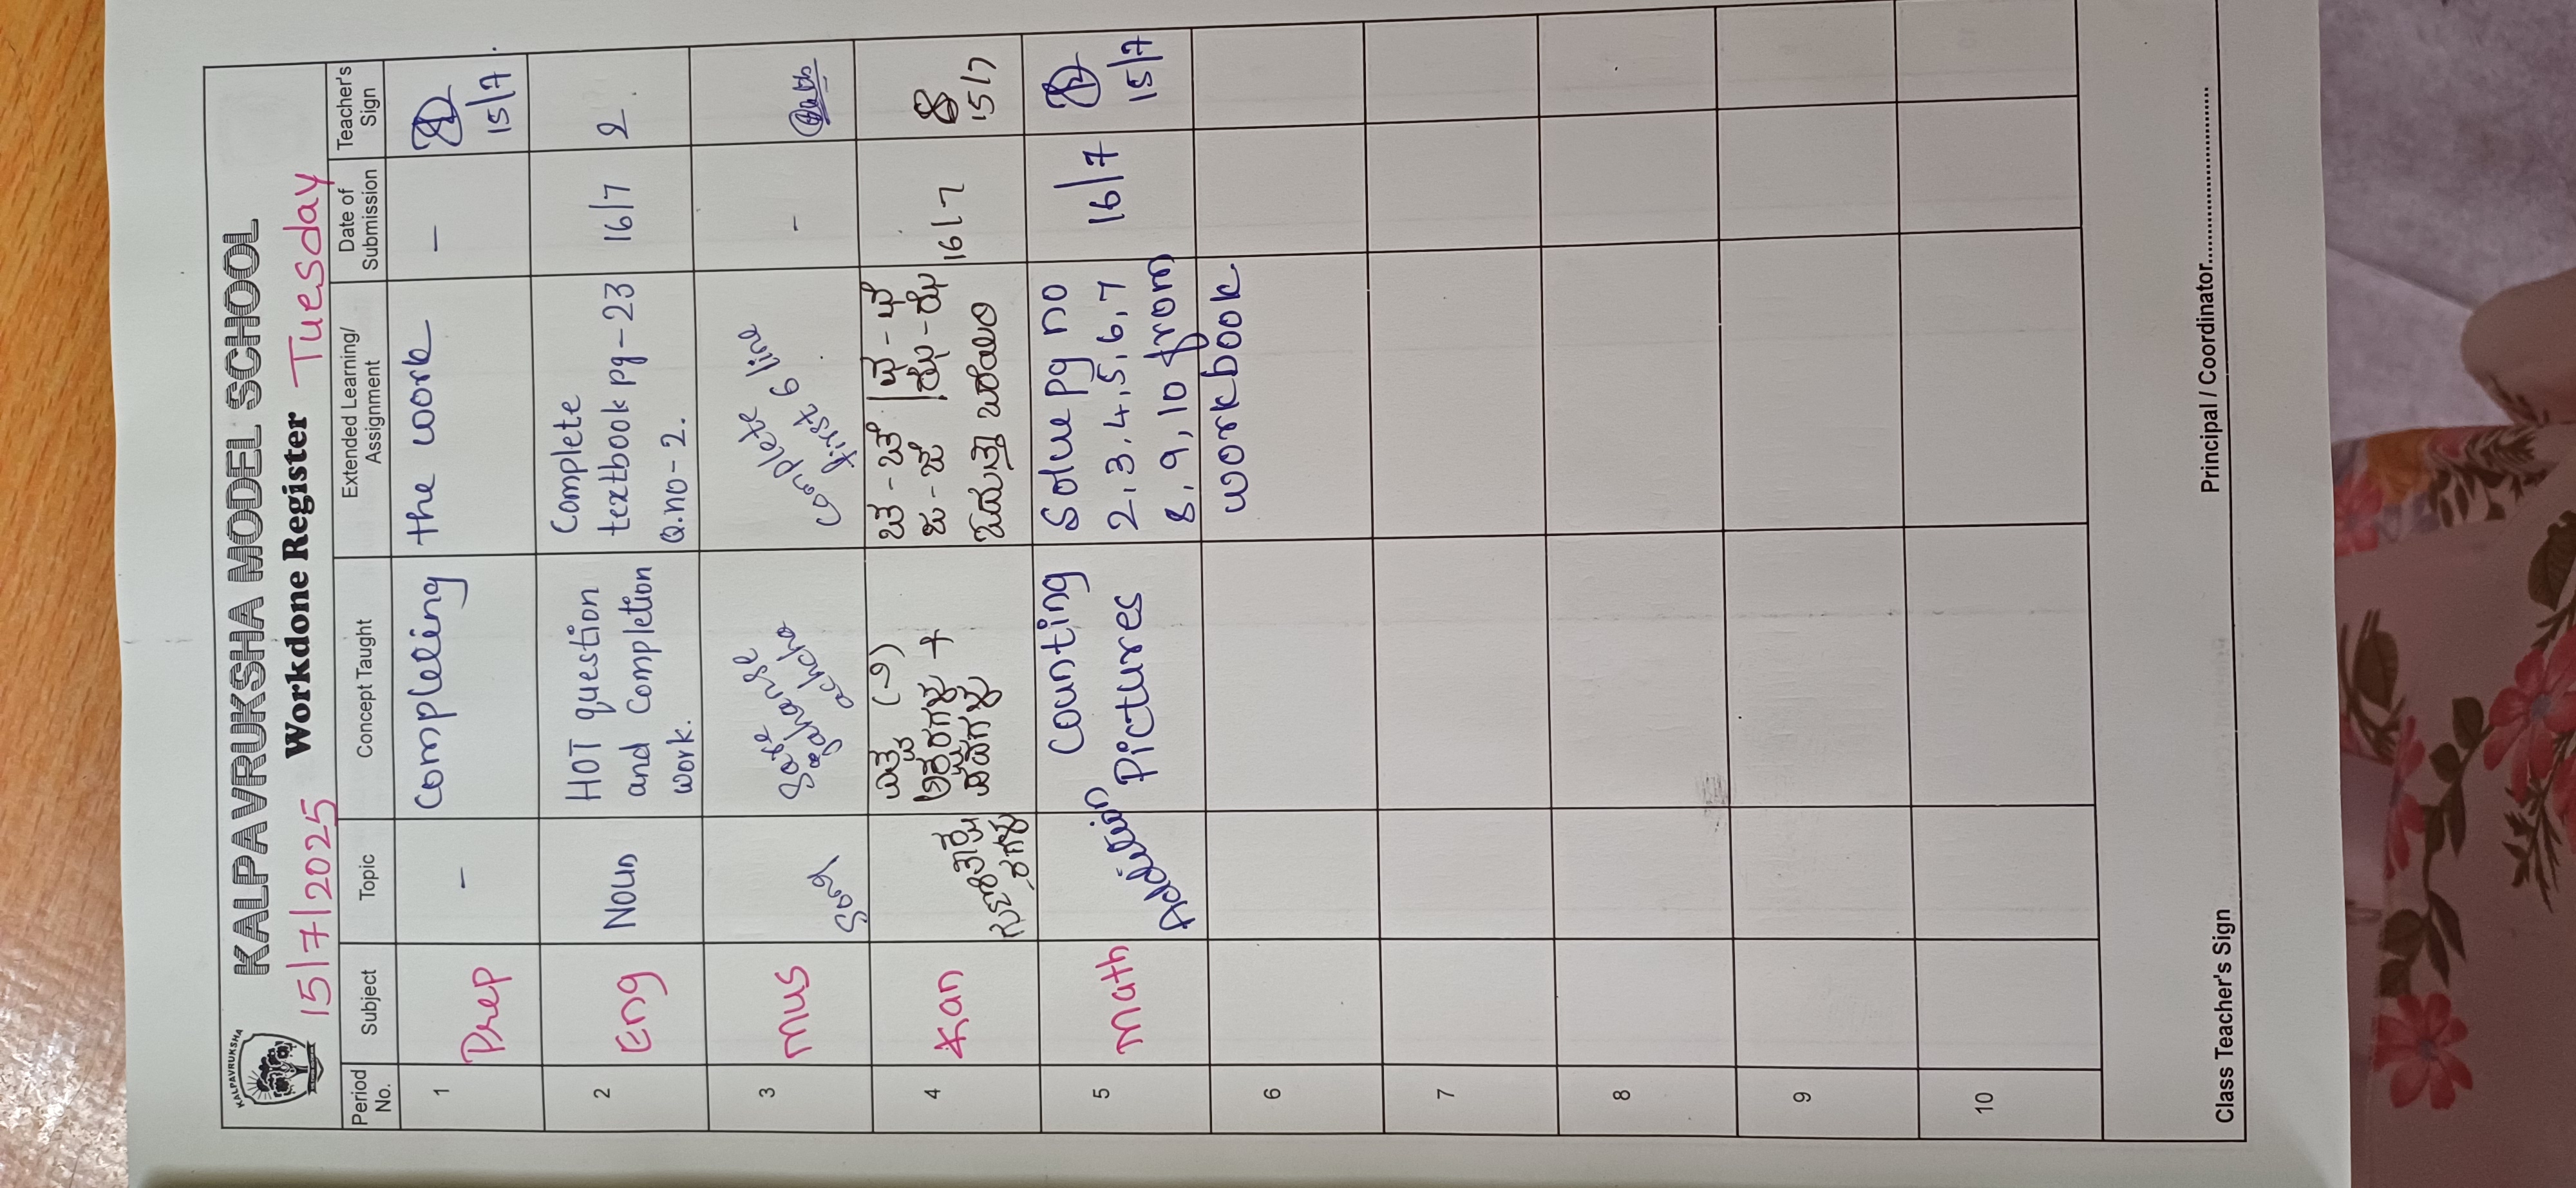 KALPAVRUKSHA
KALPAVRUKSHA MODEL SCHOOL
15/7/2025 Workdone Register Tuesday
Period No. Subject Topic Concept Taught Extended Learning/ Assignment Date of Submission Teacher's Sign
1 Prep - Completing the work - 15/7
2 Eng Noun HOT question and Completion work. Complete textbook pg-23 Q.no-2. 16/7
3 Mus Song complete first 6 line -
4 Kan 16/7 15/7
5 Math Addition Counting Pictures Solve pg no 2,3,4,5,6,7 8,9,10 from workbook 16/7 15/7
6
7
8
9
10
Class Teacher's Sign Principal / Coordinator